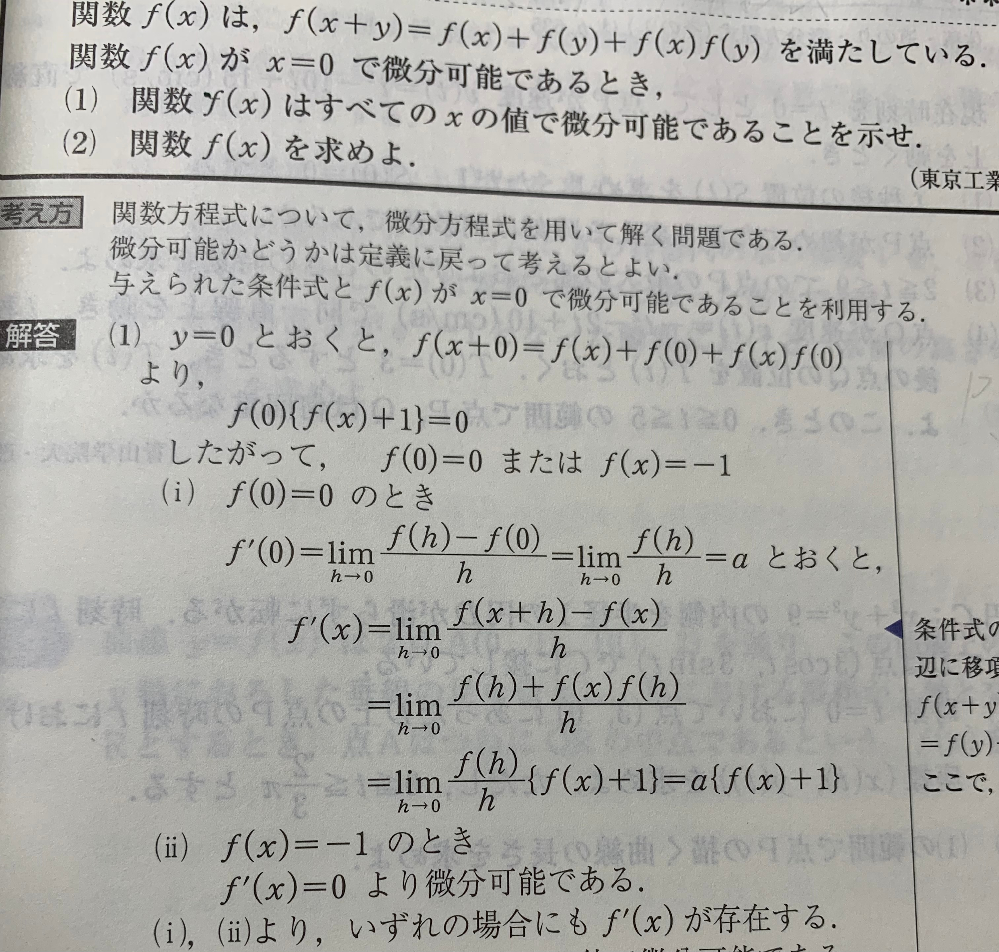 関数 f(x) は，f(x+y)=f(x)+f(y)+f(x)f(y) を満たしている．
関数 f(x) が x=0 で微分可能であるとき，
(1) 関数 f(x) はすべての x の値で微分可能であることを示せ．
(2) 関数 f(x) を求めよ．
(東京工業
考え方 関数方程式について，微分方程式を用いて解く問題である．
微分可能かどうかは定義に戻って考えるとよい．
与えられた条件式と f(x) が x=0 で微分可能であることを利用する．
解答 (1) y=0 とおくと，f(x+0)=f(x)+f(0)+f(x)f(0)
より，
f(0){f(x)+1}=0
したがって， f(0)=0 または f(x)=-1
(i) f(0)=0 のとき
f'(0)=lim_{h→0} \frac{f(h)-f(0)}{h}=lim_{h→0} \frac{f(h)}{h}=a とおくと，
f'(x)=lim_{h→0} \frac{f(x+h)-f(x)}{h}
=lim_{h→0} \frac{f(h)+f(x)f(h)}{h}
=lim_{h→0} \frac{f(h)}{h}{f(x)+1}=a{f(x)+1}
(ii) f(x)=-1 のとき
f'(x)=0 より微分可能である．
(i)，(ii)より，いずれの場合にも f'(x) が存在する．
◀ 条件式の
辺に移項
f(x+y
=f(y)
ここで，